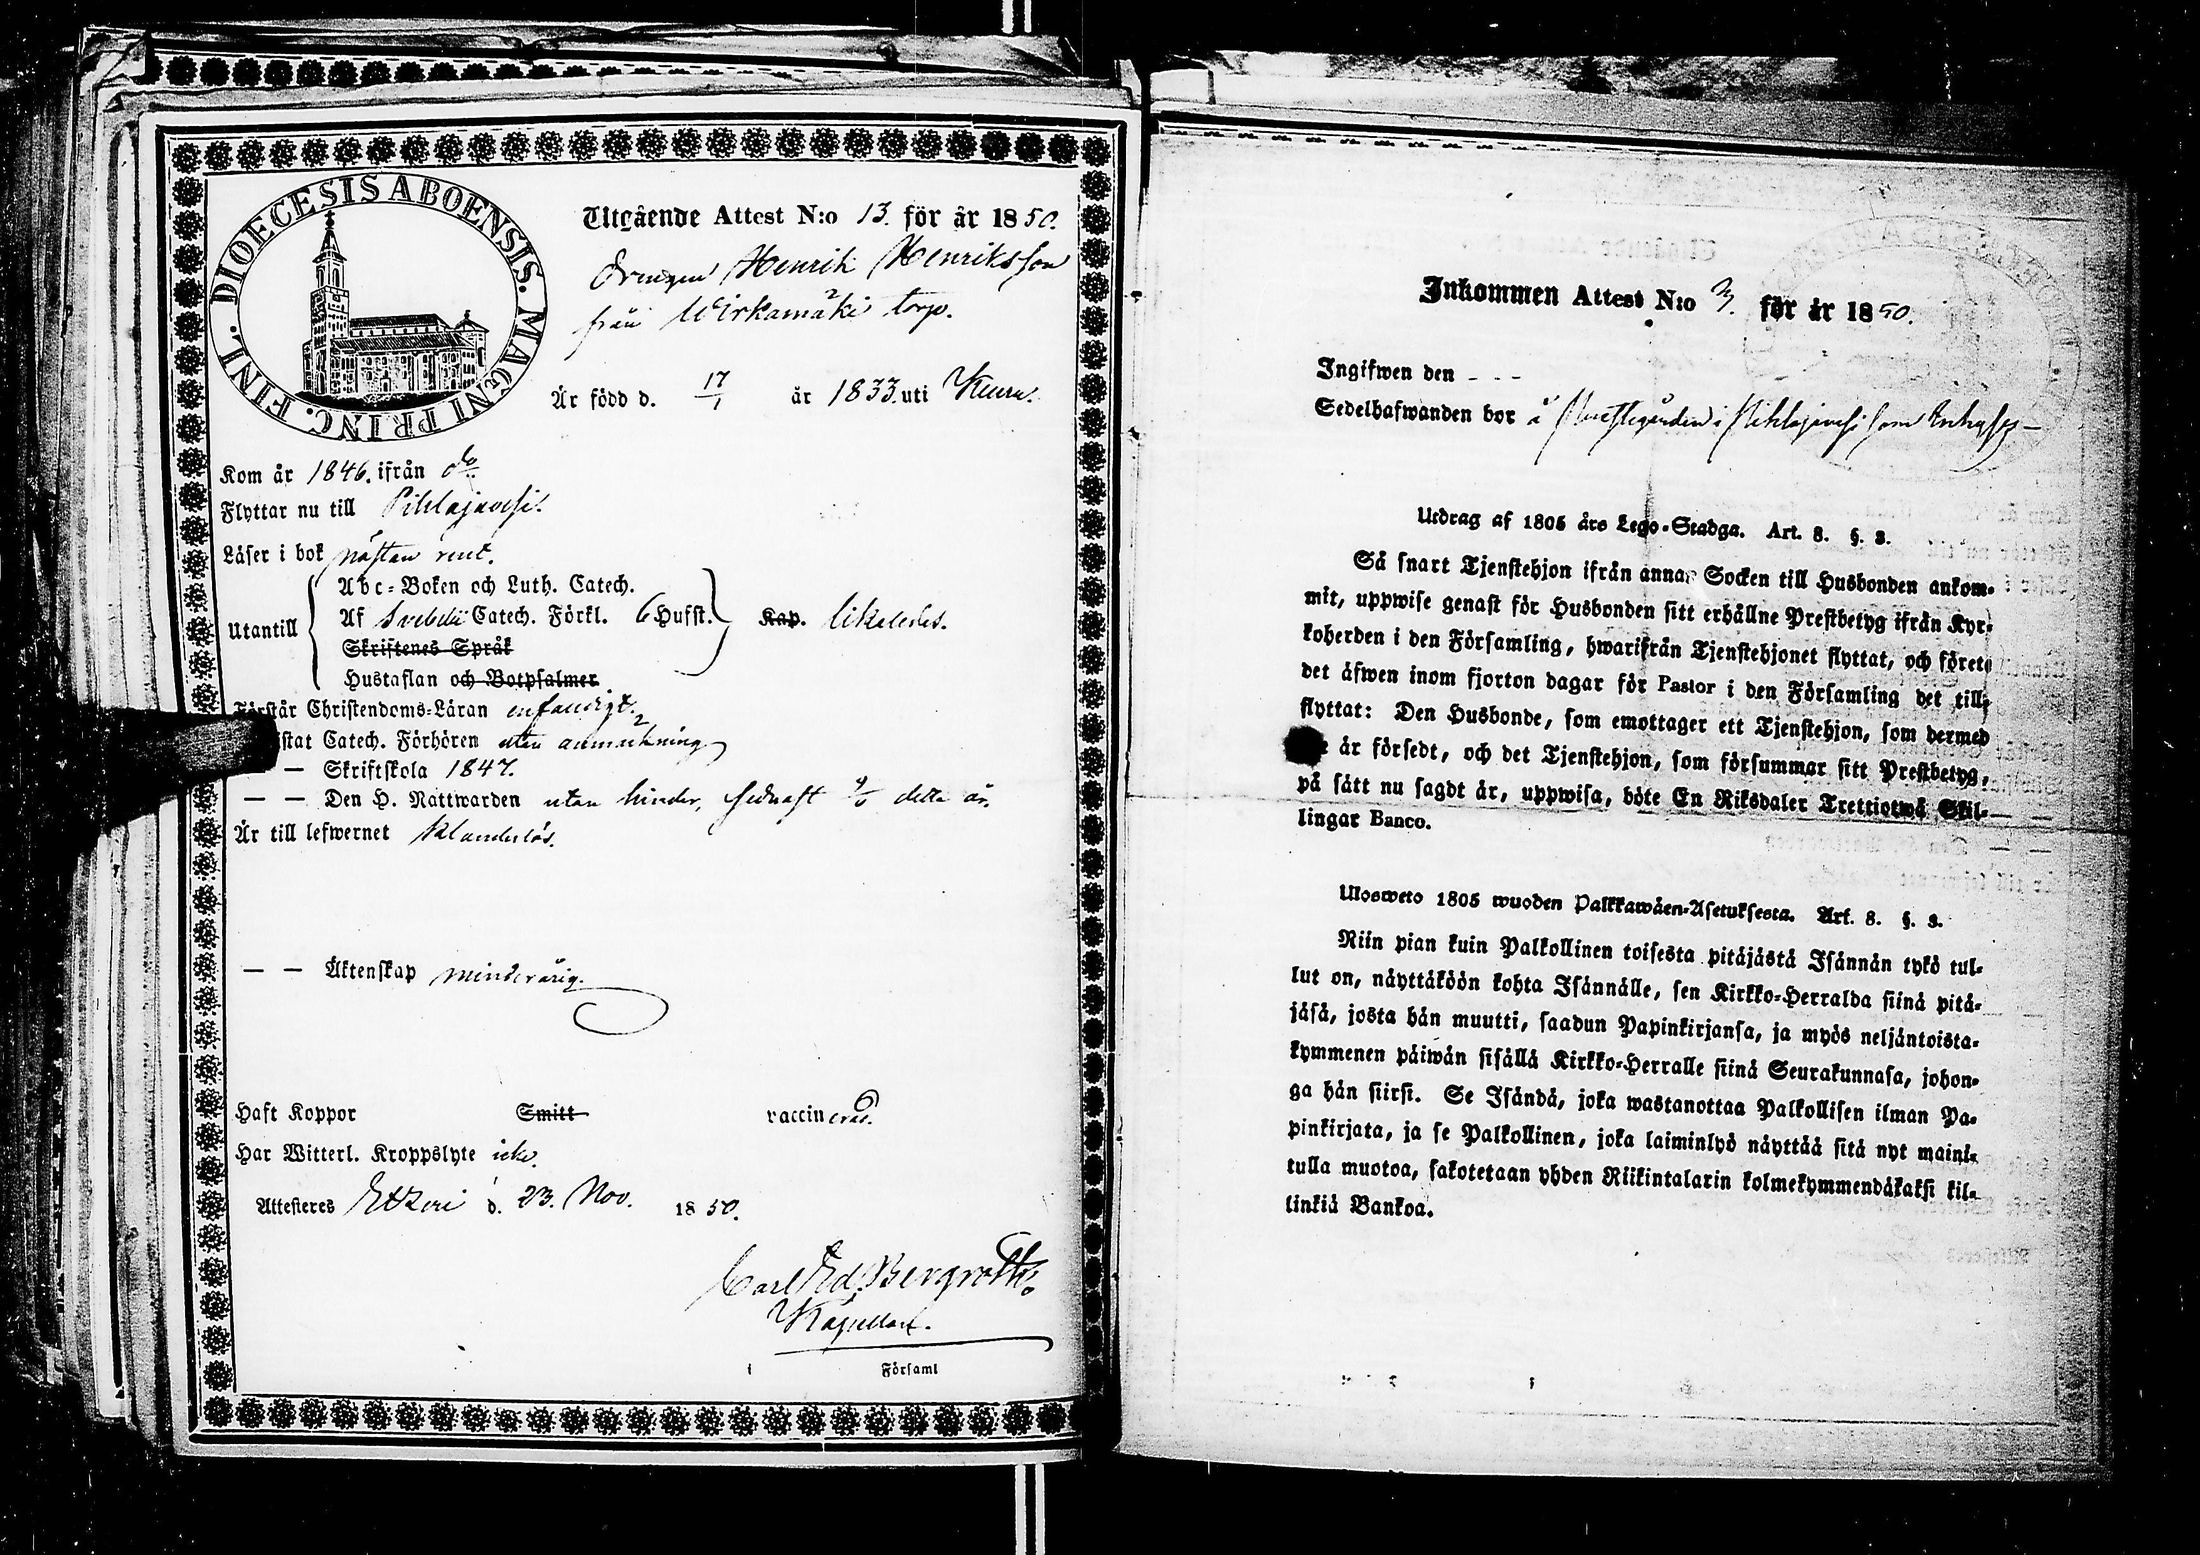 DIOECESIS ABOENSIS. MAGNI PRINC. FINL.
Utgående Attest N:o 13. för år 1850.
Drengen Henrik Henriksson
från Wirkamäki torp.
Är född d. 17/1 år 1833. uti Keuru.
Kom år 1846. ifrån do
Flyttar nu till Pihlajavesi.
Läser i bok nästan rent.
Utantill
Abc-Boken och Luth. Catech.
Af Svebelii Catech. Förkl. 6 Hufst. Kap. likaledes.
Skriftenes Språk
Hustaflan och Botpsalmer
Förstår Christendoms-Läran enfaldigt.
istat Catech. Förhören utan anmärkning
— Skriftskola 1847.
— — Den H. Nattwarden utan hinder, sednast detta år.
Är till lefwernet klanderlös.
— — Äktenskap minderårig.
Haft Koppor Smitt vaccinerad.
Har Witterl. Kroppslyte icke.
Attesteres Etzeri d. 23. Nov. 1850.
Carl Ed. Bergroth.
Kapellan.
i Församl
Inkommen Attest N:o 3. för år 1850.
Ingifwen den - - -
Sedelhafwanden bor å Prestegården i Pihlajavesi som Inhyses
Utdrag af 1805 års Lego-Stadga. Art. 8. §. 3.
Så snart Tjenstehjon ifrån annar Socken till Husbonden ankom-
mit, uppwise genast för Husbonden sitt erhållne Prestbetyg ifrån Kyr-
koherden i den Församling, hwarifrån Tjenstehjonet flyttat, och förete
det äfwen inom fjorton dagar för Pastor i den Församling det till-
flyttat: Den Husbonde, som emottager ett Tjenstehjon, som dermed
är försedt, och det Tjenstehjon, som försummar sitt Prestbetyg,
på sätt nu sagdt är, uppwisa, böte En Riksdaler Trettiotwå Skil-
lingar Banco.
Ulosweto 1805 wuoden Palkkawäen-Asetuksesta. Art. 8. §. 3.
Niin pian kuin Palkollinen toisesta pitäjästä Isännän tykö tul-
lut on, näyttäköön kohta Isännälle, sen Kirkko-Herralda siinä pitä-
jäsä, josta hän muutti, saadun Papinkirjansa, ja myös neljäntoista-
kymmenen päiwän sisällä Kirkko-Herralle siinä Seurakunnasa, johon-
ga hän siirsi. Se Isändä, joka wastanottaa Palkollisen ilman Pa-
pinkirjata, ja se Palkollinen, joka laiminlyö näyttää sitä nyt maini-
tulla muotoa, sakotetaan yhden Riikintalarin kolmekymmendäkaksi kil-
linkiä Bankoa.